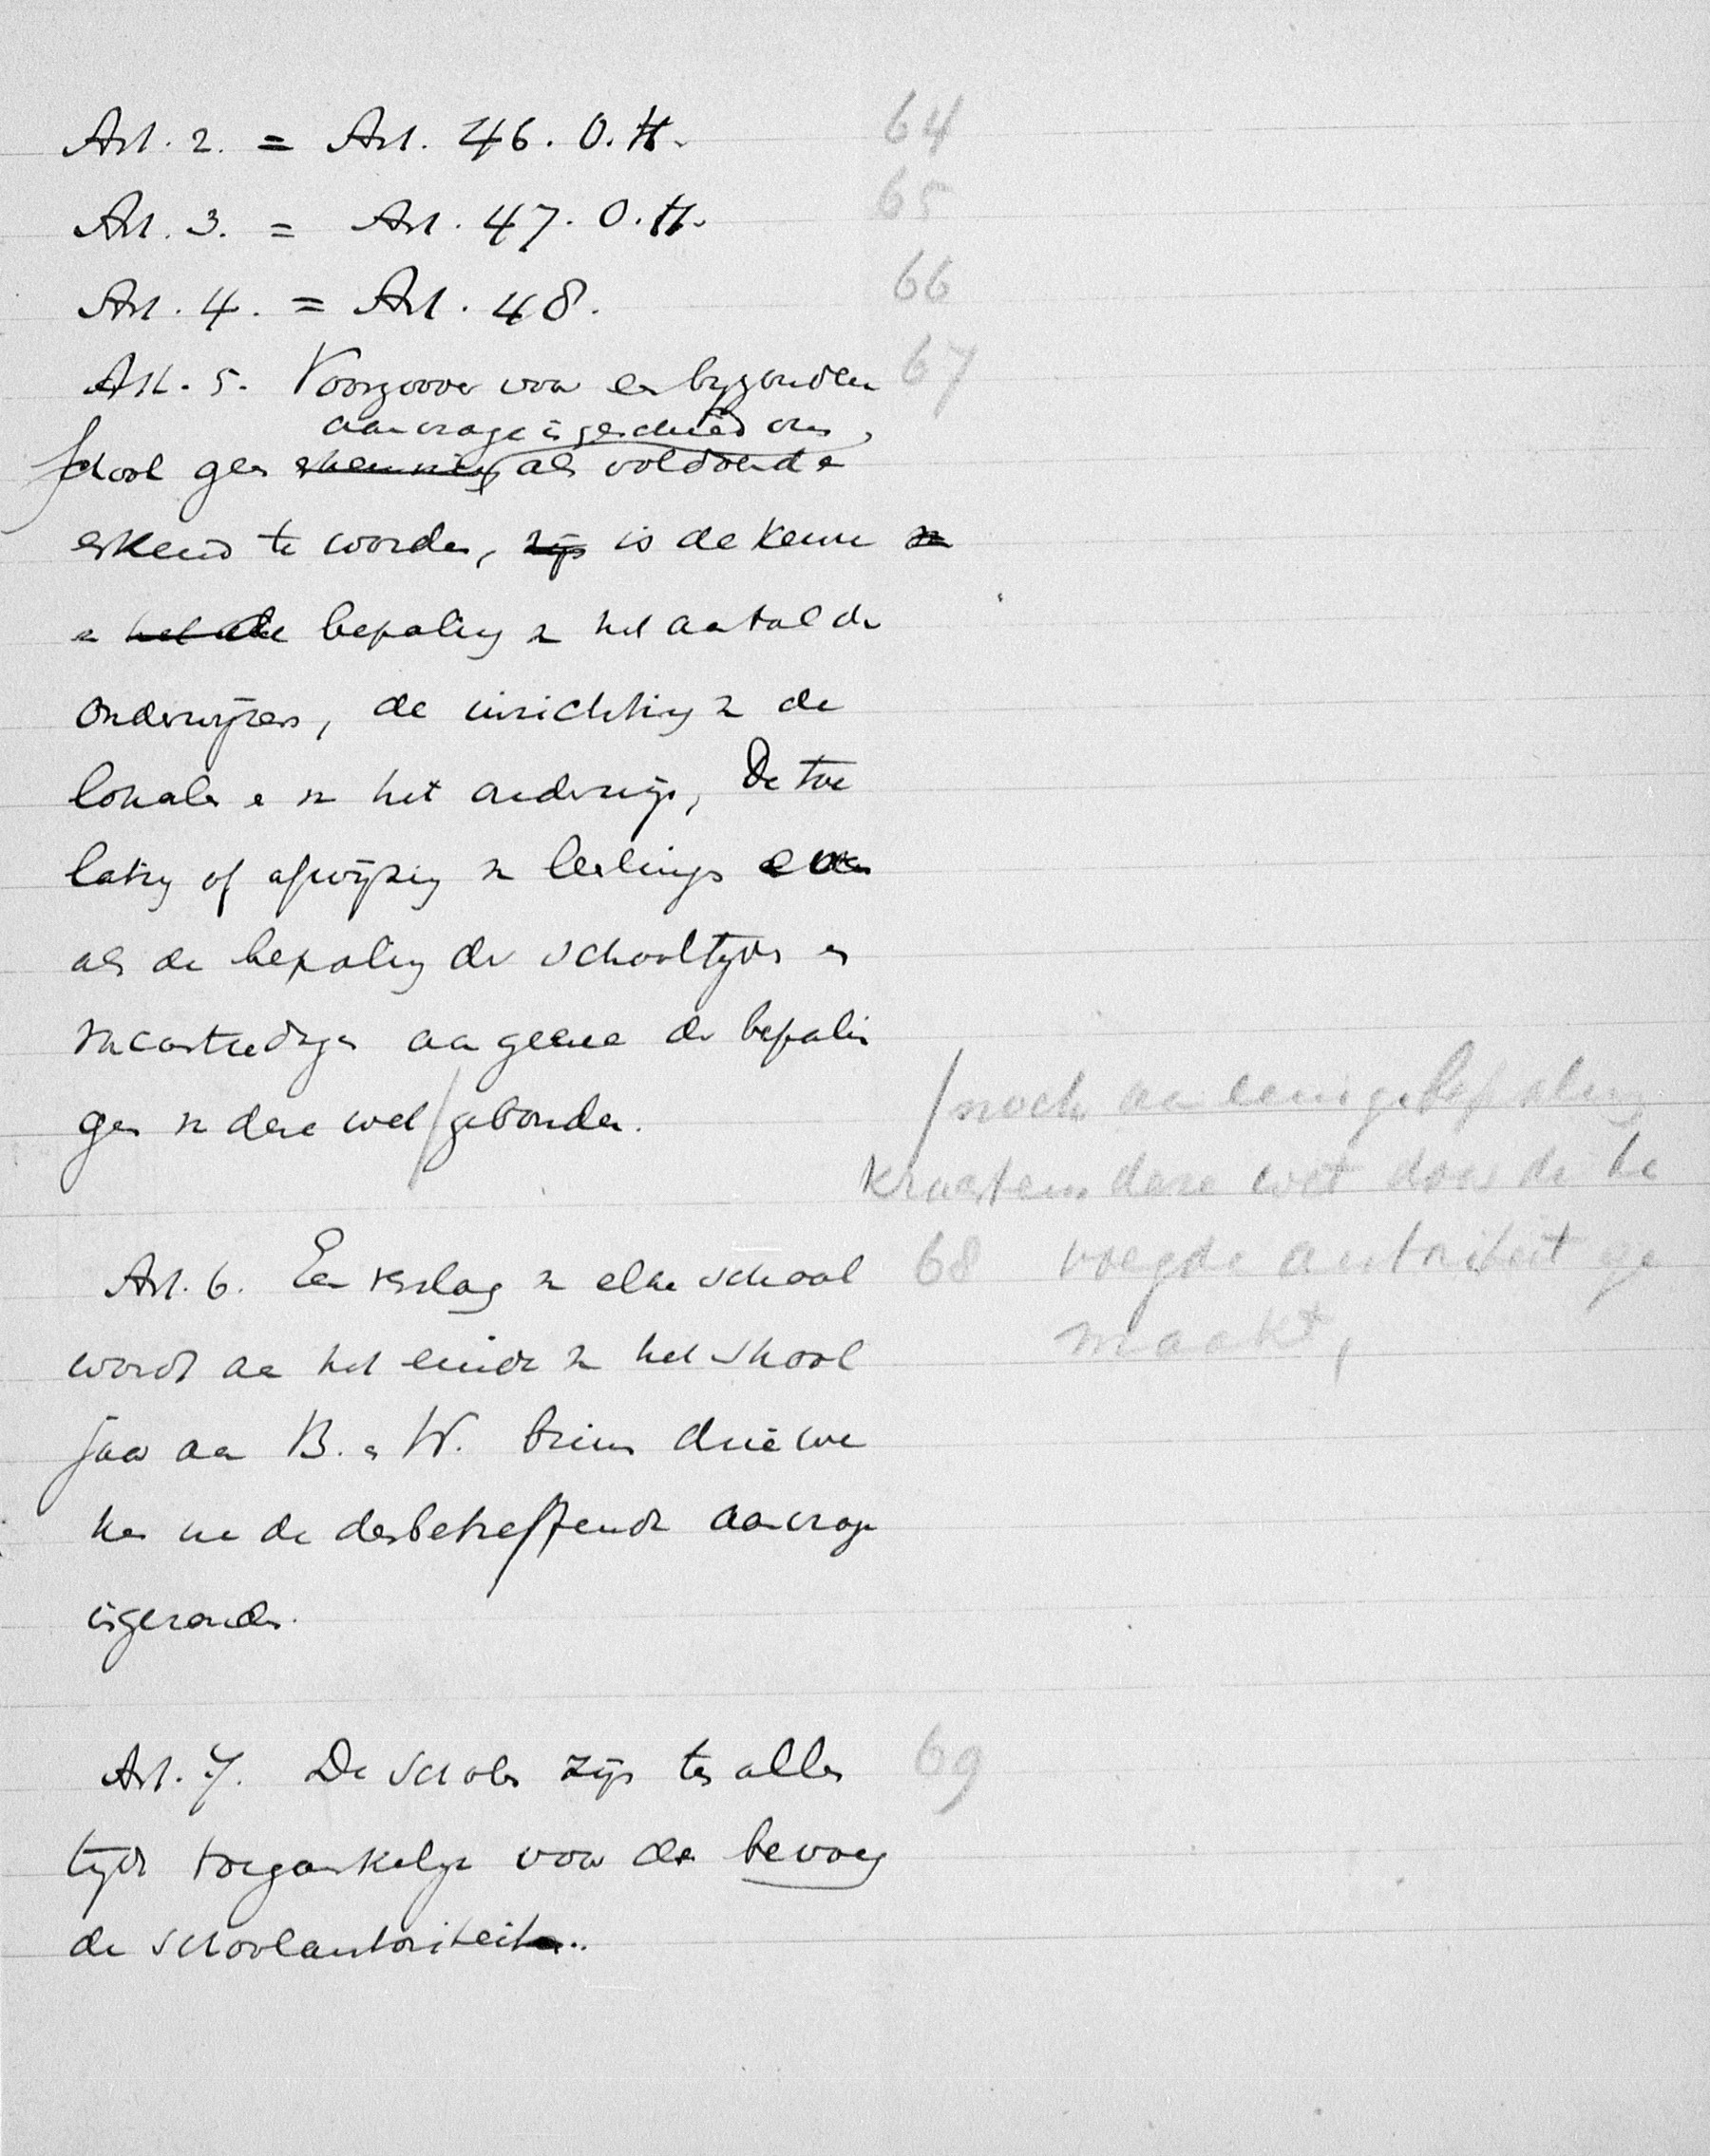 Art. 2. = Art. 46. O.H. 64
Art. 3. = Art. 47. O.H. 65
Art. 4. = Art. 48. 66
Art. 5. Voorzoover voor een byzondere 67
aanvrage is geschied om,
school geen erkenning als voldoende
erkend te worden, zijn is de keuze
en het de bepaling van het aantal der
onderwijzers, de inrichting van de
lokalen en van het onderwijs, De toe
lating of afwijzing van leerlingen
als de bepaling der schooltyden en
vacantiedagen aan geene der bepalin
gen van deze wet / gebonden.
/ noch aan eenige bepaling
krachtens deze wet door de be
voegde autoriteit ge
maakt,
Art. 6. Een verslag van elke school 68
wordt aan het einde van het school
jaar aan B. en W. binnen drie we
ken na de desbetreffende aanvrage
ingezonden.
Art. 7. De scholen zijn ten allen 69
tyde toegankelyk voor de bevoeg
de schoolautoriteiten.